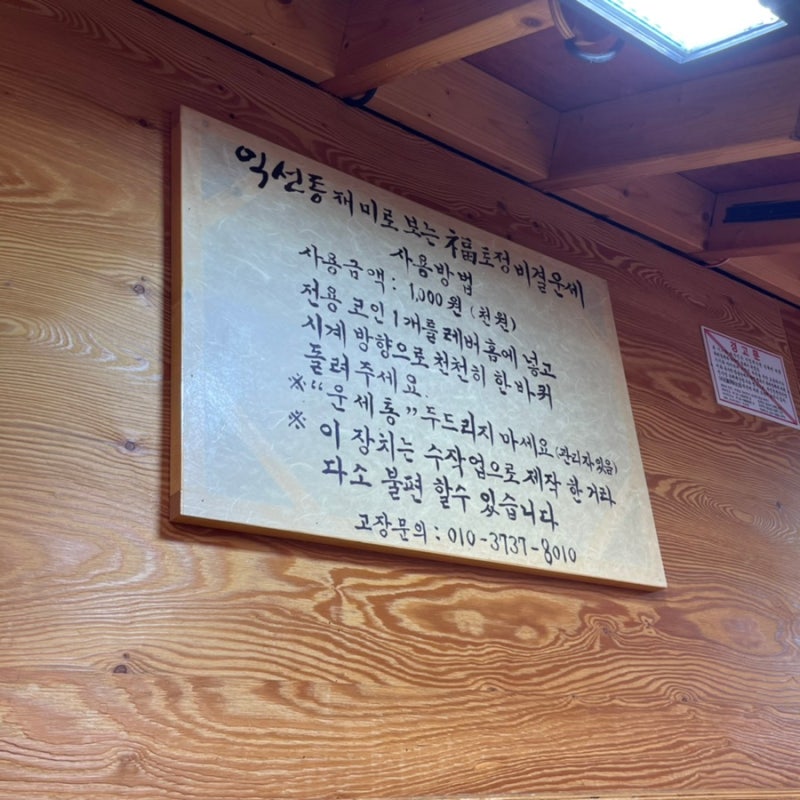 익선동 재미로 보는 福 토정비결 운세
사용방법
사용금액 : 1,000원 (천원)
전용 코인 1개를 레버 홈에 넣고
시계 방향으로 천천히 한바퀴
돌려 주세요.
※ "운세통" 두드리지 마세요 (관리자있음)
※ 이 장치는 수작업으로 제작 한거라
다소 불편 할수 있습니다
고장문의 : 010-3737-8010
경고문